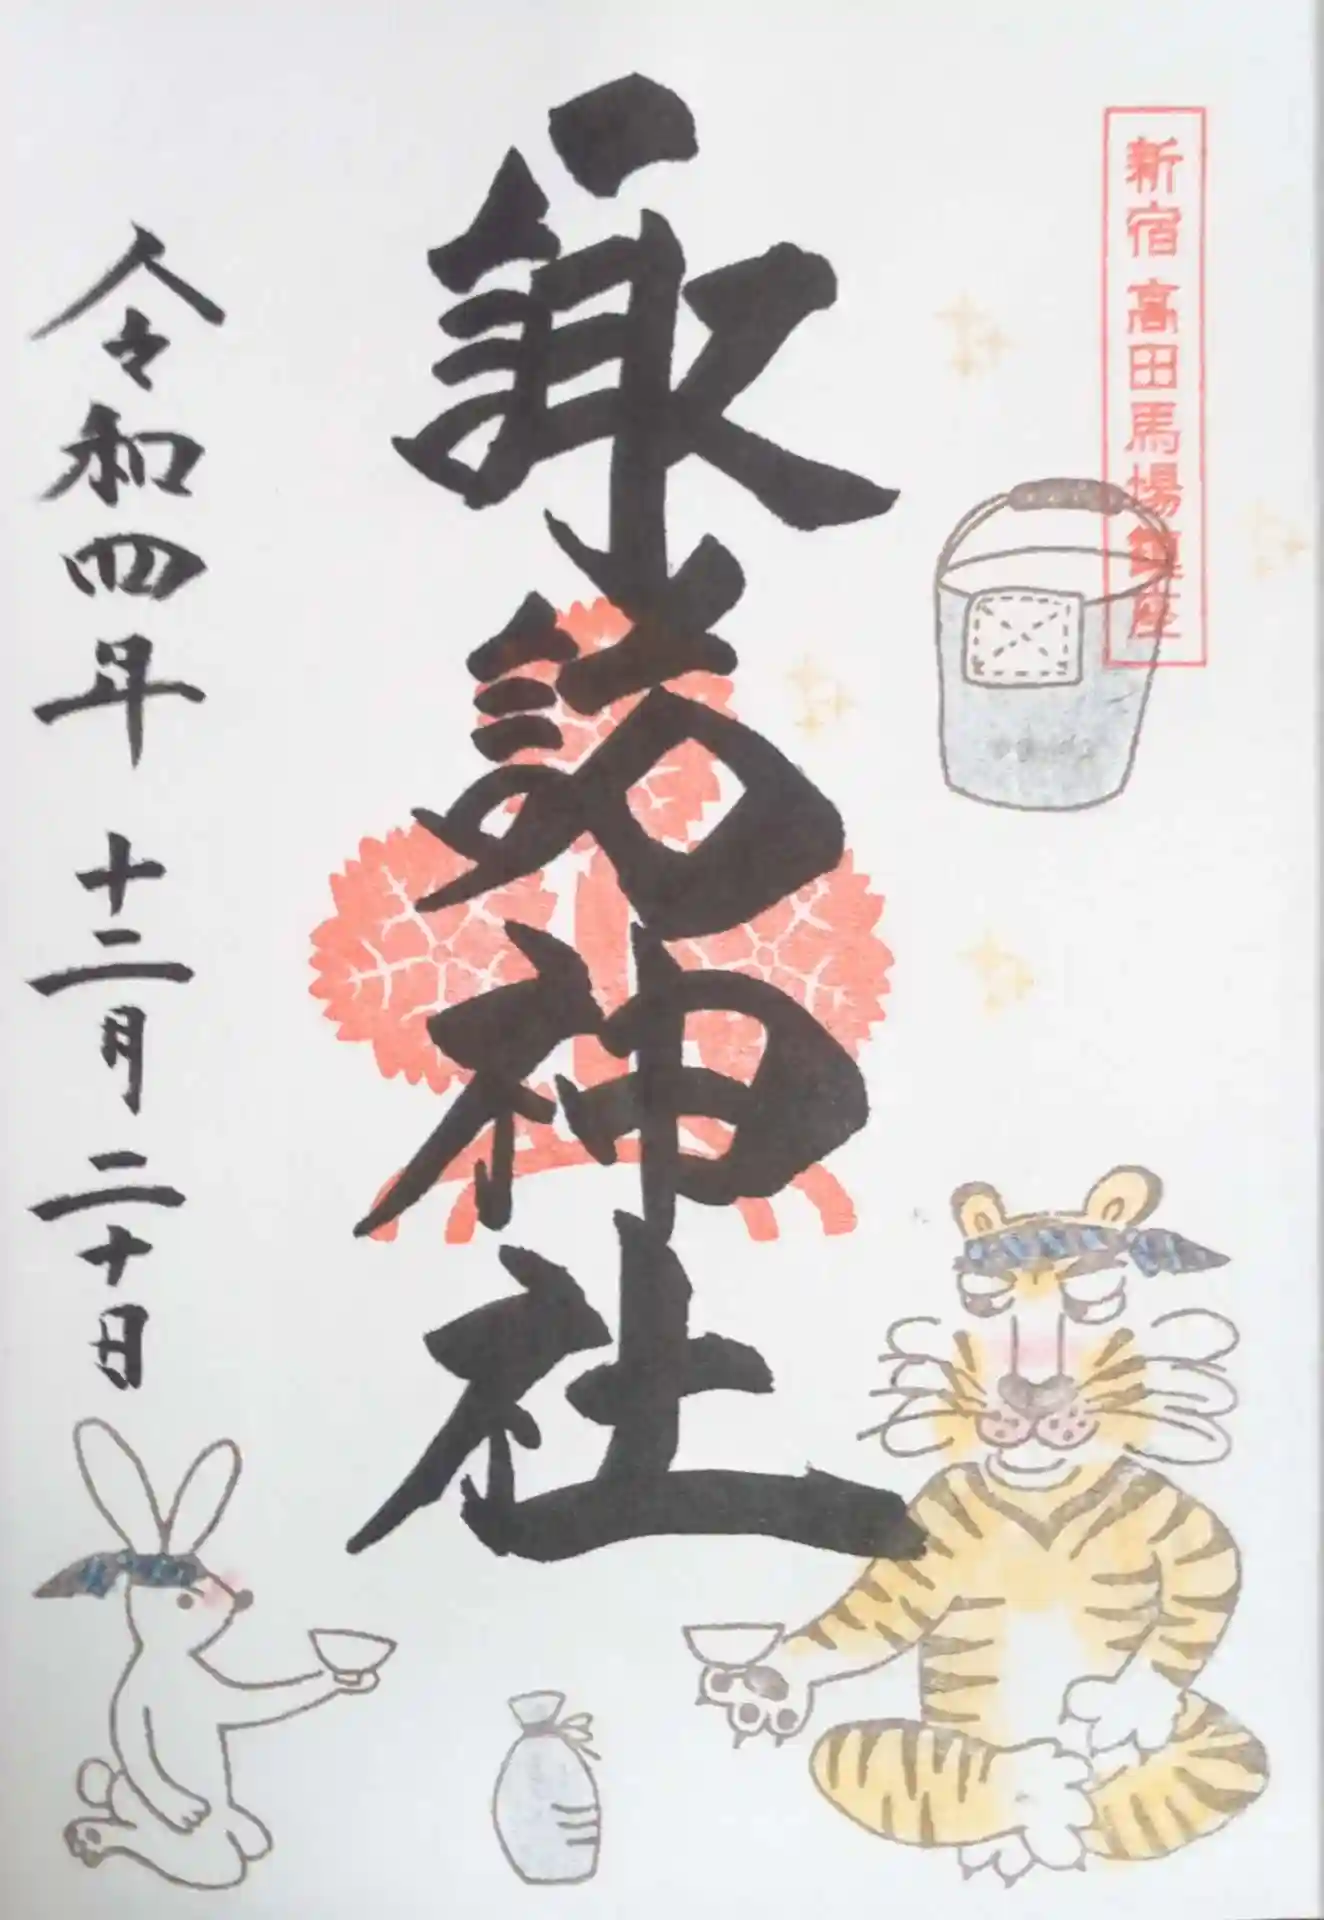 新宿 高田馬場鎮座
諏訪神社
令和四年 十二月 二十日